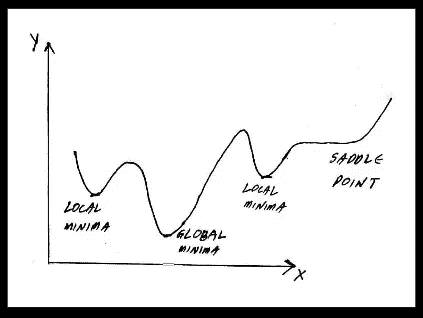 Y
LOCAL
MINIMA
GLOBAL
MINIMA
LOCAL
MINIMA
SADDLE
POINT
X